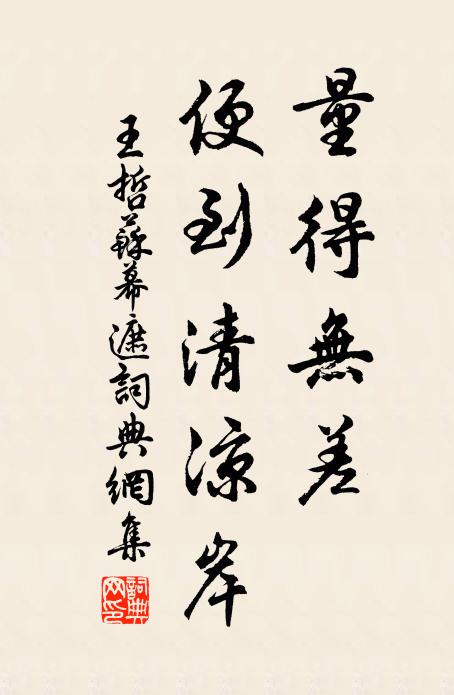 量得無差
便到清涼岸
王哲蘇幕遮詞典網集
詞典
網印